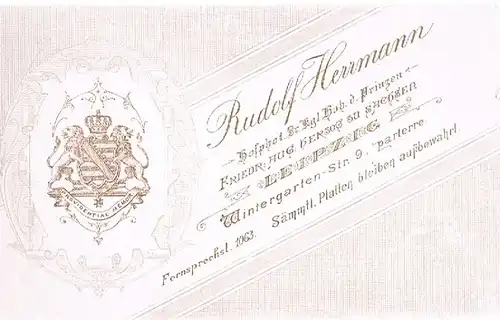 Rudolf Herrmann
Hofphot. Sr. Kgl. Hoh. d. Prinzen
FRIEDR. AUG. HERZOG ZU SACHSEN
LEIPZIG
Wintergarten-Str. 9. parterre
Sämmtl. Platten bleiben aufbewahrt.
Fernsprechst. 1063.
PROVIDENTIAE MEMOR